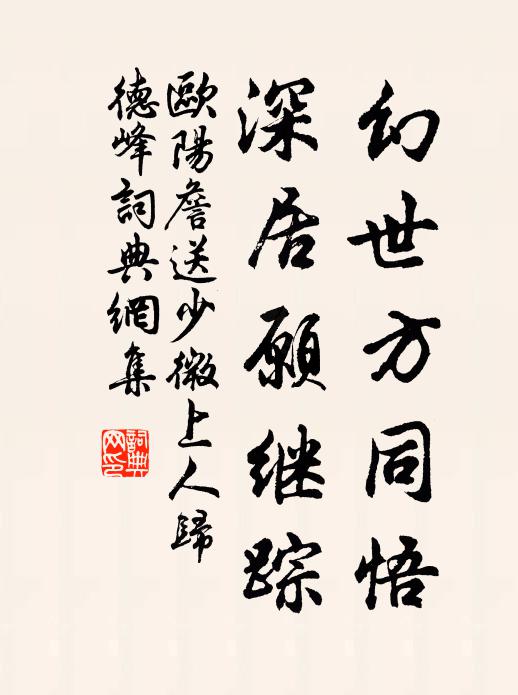 幻世方同悟
深居願继踪
歐陽詹送少微上人歸
德峰詞典網集
詞典网印